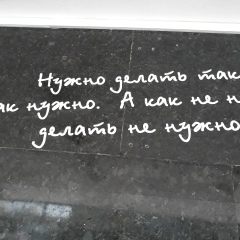 Нужно делать так
ак нужно. А как не н
делать не нужно